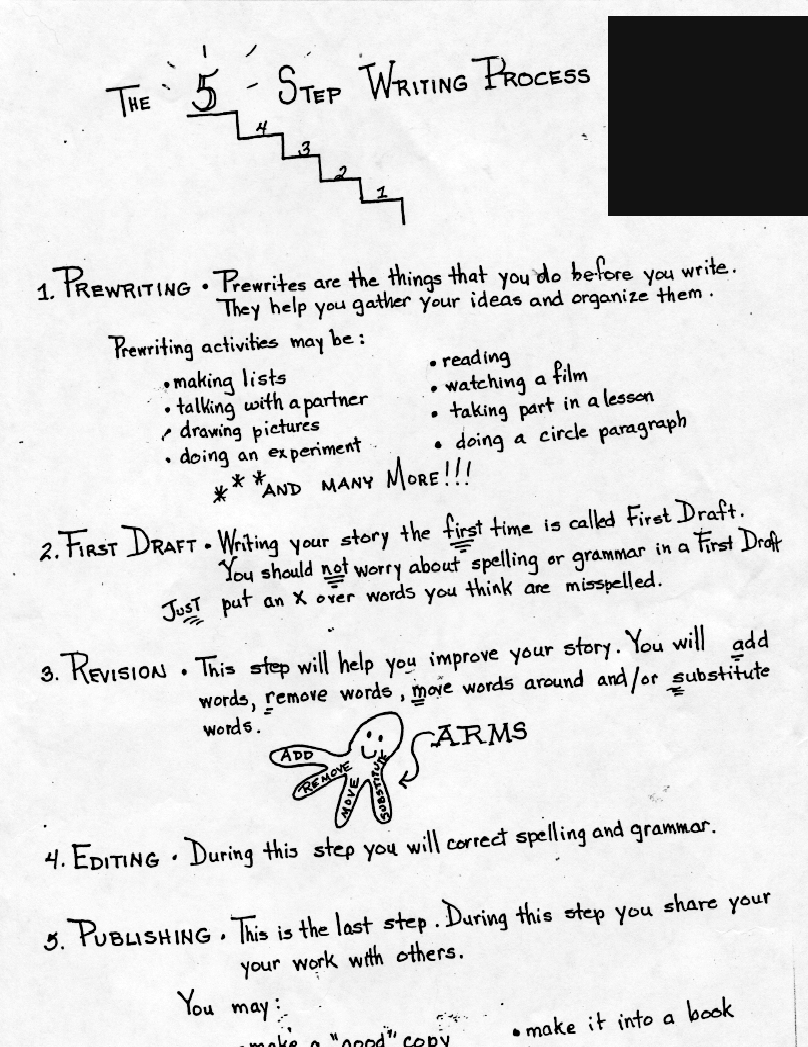 THE 5 STEP WRITING PROCESS
4
3
2
1
1. PREWRITING • Prewrites are the things that you do before you write.
They help you gather your ideas and organize them.
Prewriting activities may be:
• making lists
• talking with a partner
• drawing pictures
• doing an experiment
• reading
• watching a film
• taking part in a lesson
• doing a circle paragraph
*** AND MANY MORE!!!
2. FIRST DRAFT • Writing your story the first time is called First Draft.
You should not worry about spelling or grammar in a First Draft
JUST put an X over words you think are misspelled.
3. REVISION • This step will help you improve your story. You will add
words, remove words, move words around and/or substitute
words.
ARMS
ADD
REMOVE
MOVE
SUBSTITUTE
4. EDITING • During this step you will correct spelling and grammar.
5. PUBLISHING • This is the last step. During this step you share your
your work with others.
You may:
• make a "good" copy
• make it into a book